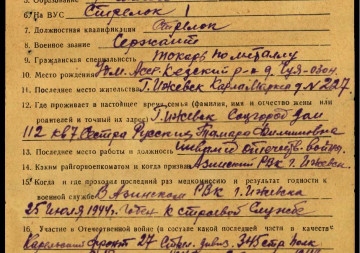 6. На ВУС Стрелок 1
7. Должностная квалификация Стрелок
8. Военное звание Сержант
9. Гражданская специальность Токарь по металлу
10. Место рождения Удм. Асср Кезский р-н д. Гуя-озон.
11. Последнее место жительства г. Ижевск Карла Маркса д. № 227.
12. Где проживает в настоящее время семья (фамилия, имя и отчество жены или
родителей и точный их адрес) г. Ижевск Соцгород дом
112 кв 7 Сестра Русских Тамара Филипповна
13. Последнее место работы и должность Инвалид отечеств. войны.
14. Каким райгорвоенкоматом и когда призван Азинский РВК г. Ижевск.
15. Когда и где проходил последний раз медкомиссию и результат годности к
военной службе В Азинском РВК г. Ижевска
25 июля 1944 г. Годен к строевой службе
16. Участие в Отечественной войне (в составе какой последней части в качестве
Карельский фронт 27 Стрел. дивиз. 345 стр. полк